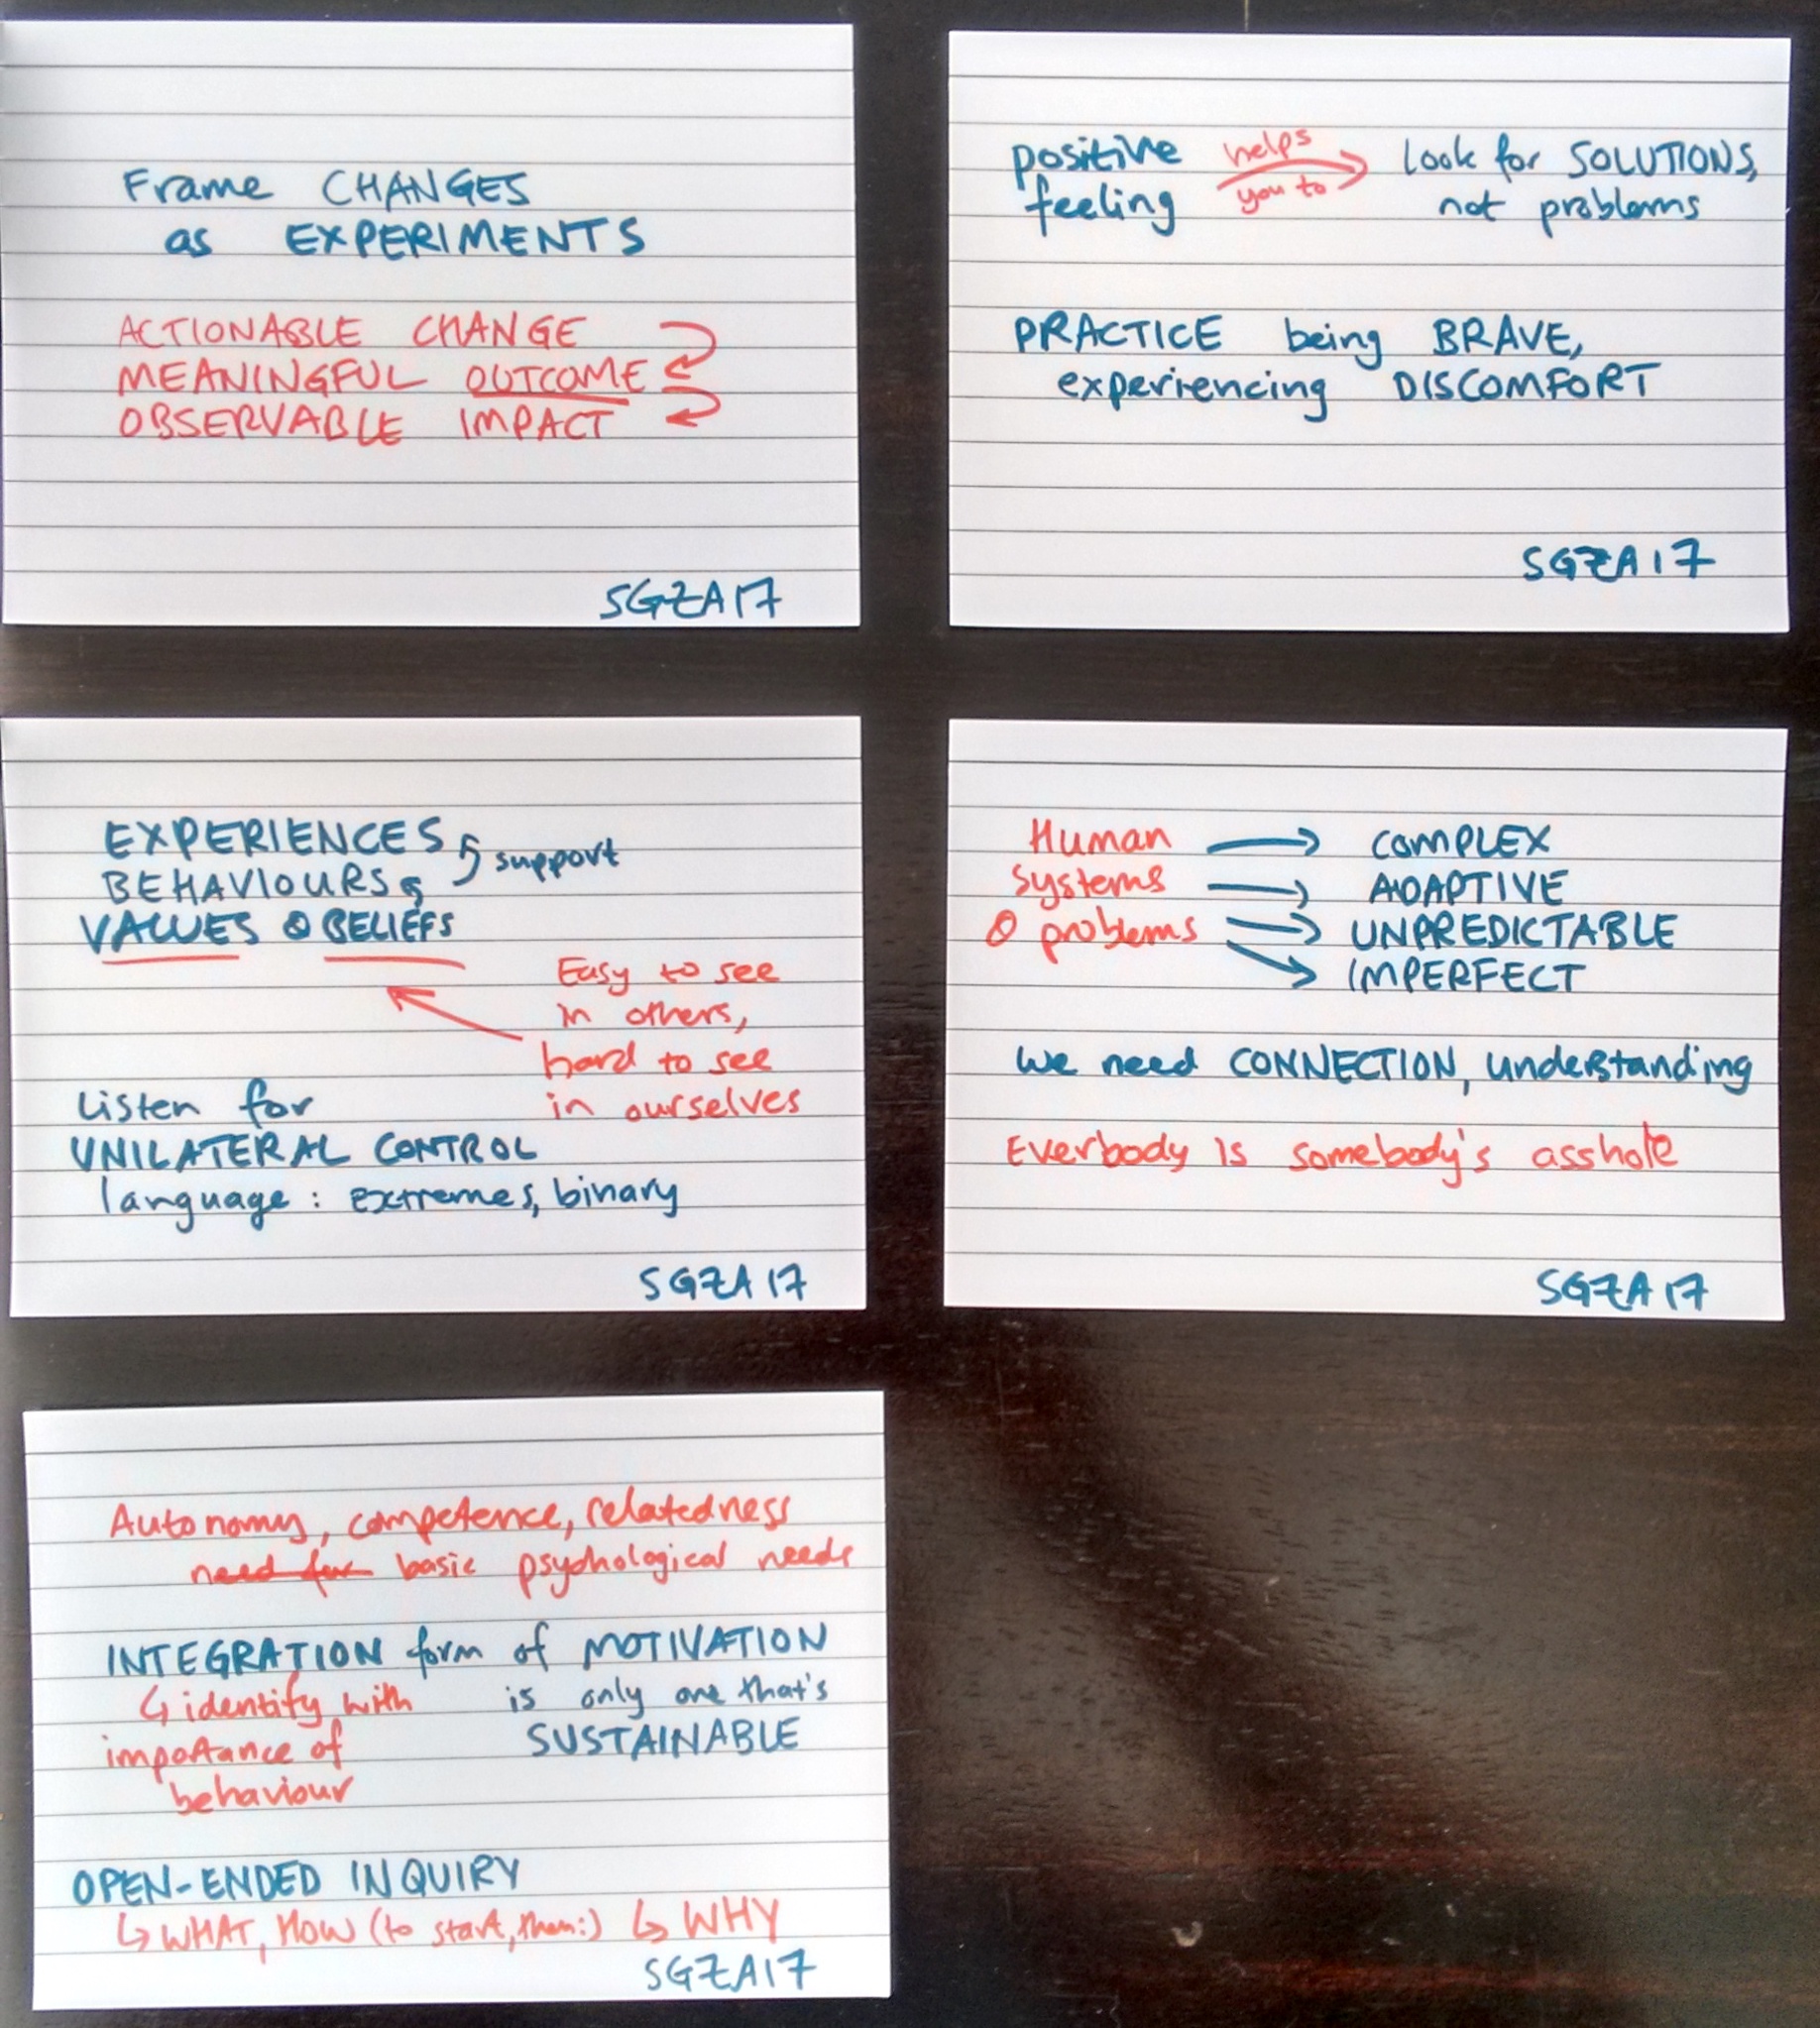 Frame CHANGES
as EXPERIMENTS
ACTIONABLE CHANGE
MEANINGFUL OUTCOME
OBSERVABLE IMPACT
SGZA17
positive helps you to Look for SOLUTIONS,
feeling not problems
PRACTICE being BRAVE,
experiencing DISCOMFORT
SGZA17
EXPERIENCES
support
BEHAVIOURS
VALUES & BELIEFS
Easy to see
in others,
hard to see
in ourselves
Listen for
UNILATERAL CONTROL
language: extremes, binary
SGZA17
Human → COMPLEX
systems → ADAPTIVE
& problems → UNPREDICTABLE
→ IMPERFECT
We need CONNECTION, understanding
Everbody is somebody's asshole
SGZA17
Autonomy, competence, relatedness
need for basic psychological needs
INTEGRATION form of MOTIVATION
↳ identify with is only one that's
importance of SUSTAINABLE
behaviour
OPEN-ENDED INQUIRY
↳ WHAT, HOW (to start, then:) ↳ WHY
SGZA17